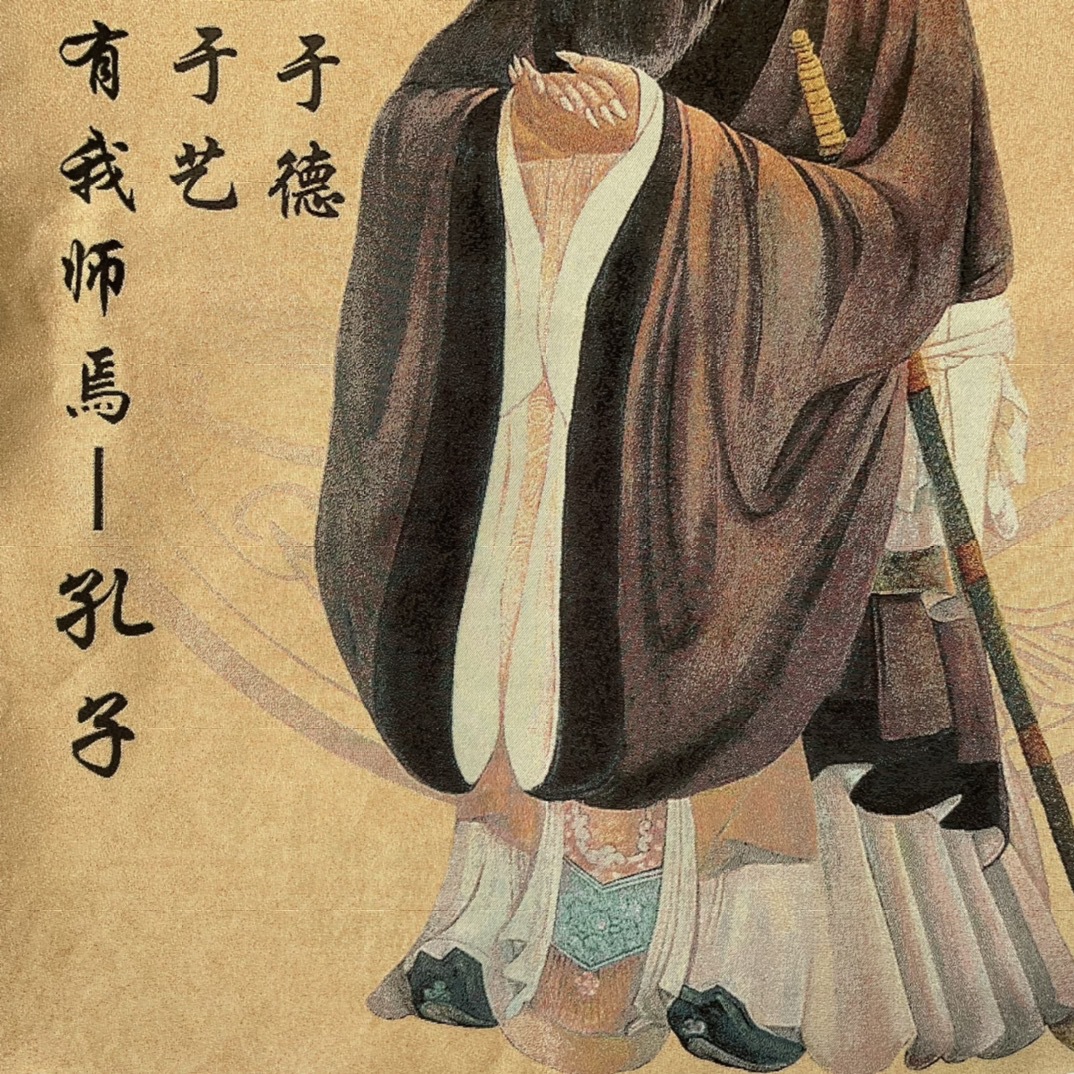 于德
于艺
有我师焉—孔子